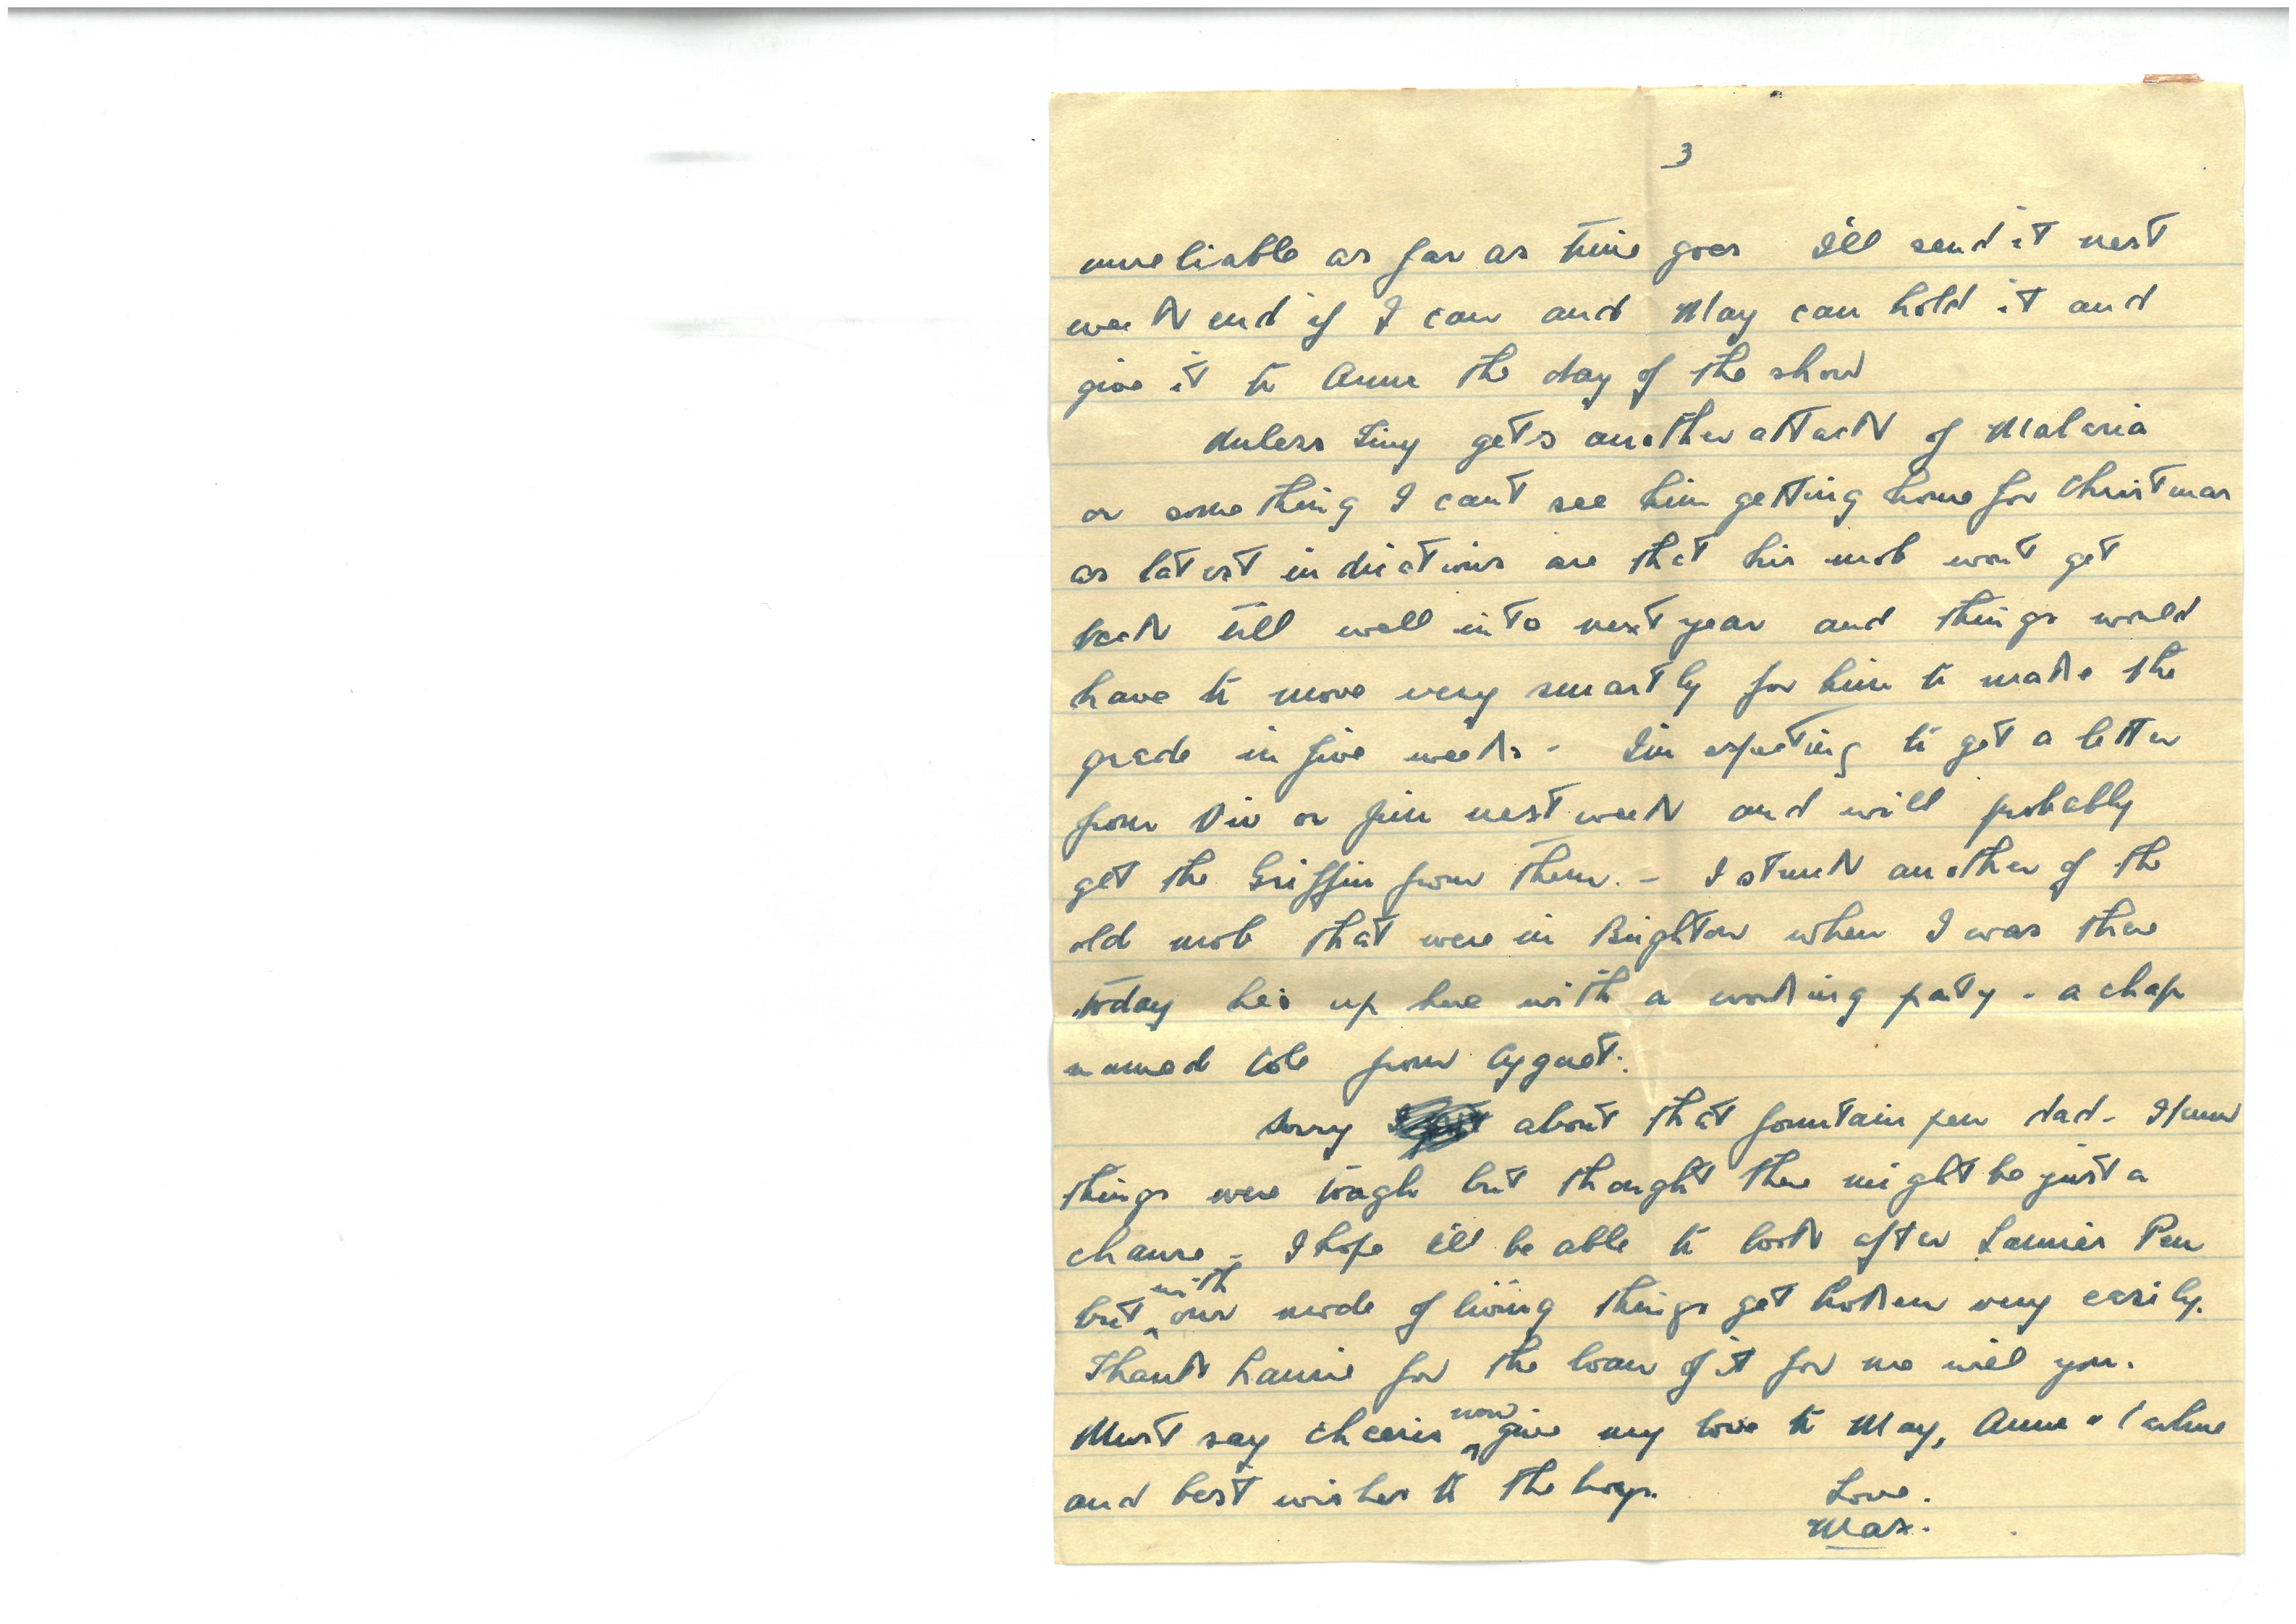 3
unreliable as far as time goes I'll send it next
week end if I can and May can hold it and
give it to Anne the day of the show
Unless Tiny gets another attack of Malaria
or something I cant see him getting home for Christmas
as latest indications are that his mob wont get
back till well into next year and things would
have to move very smartly for him to make the
grade in five weeks - I'm expecting to get a letter
from Viv or Jim next week and will probably
get the Griffin from them. - I struck another of the
old mob that were in Brighton when I was there
today he's up here with a working party - a chap
named Cole from Cygnet.
Sorry about that fountain pen dad - I knew
things were tough but thought there might be just a
chance - I hope I'll be able to look after Lannies Pen
but with our mode of living things get broken very easily.
Thank Lannie for the loan of it for me will you.
Must say cheerio now give my love to May, Anne &
and best wishes to the boys. Love.
Max.